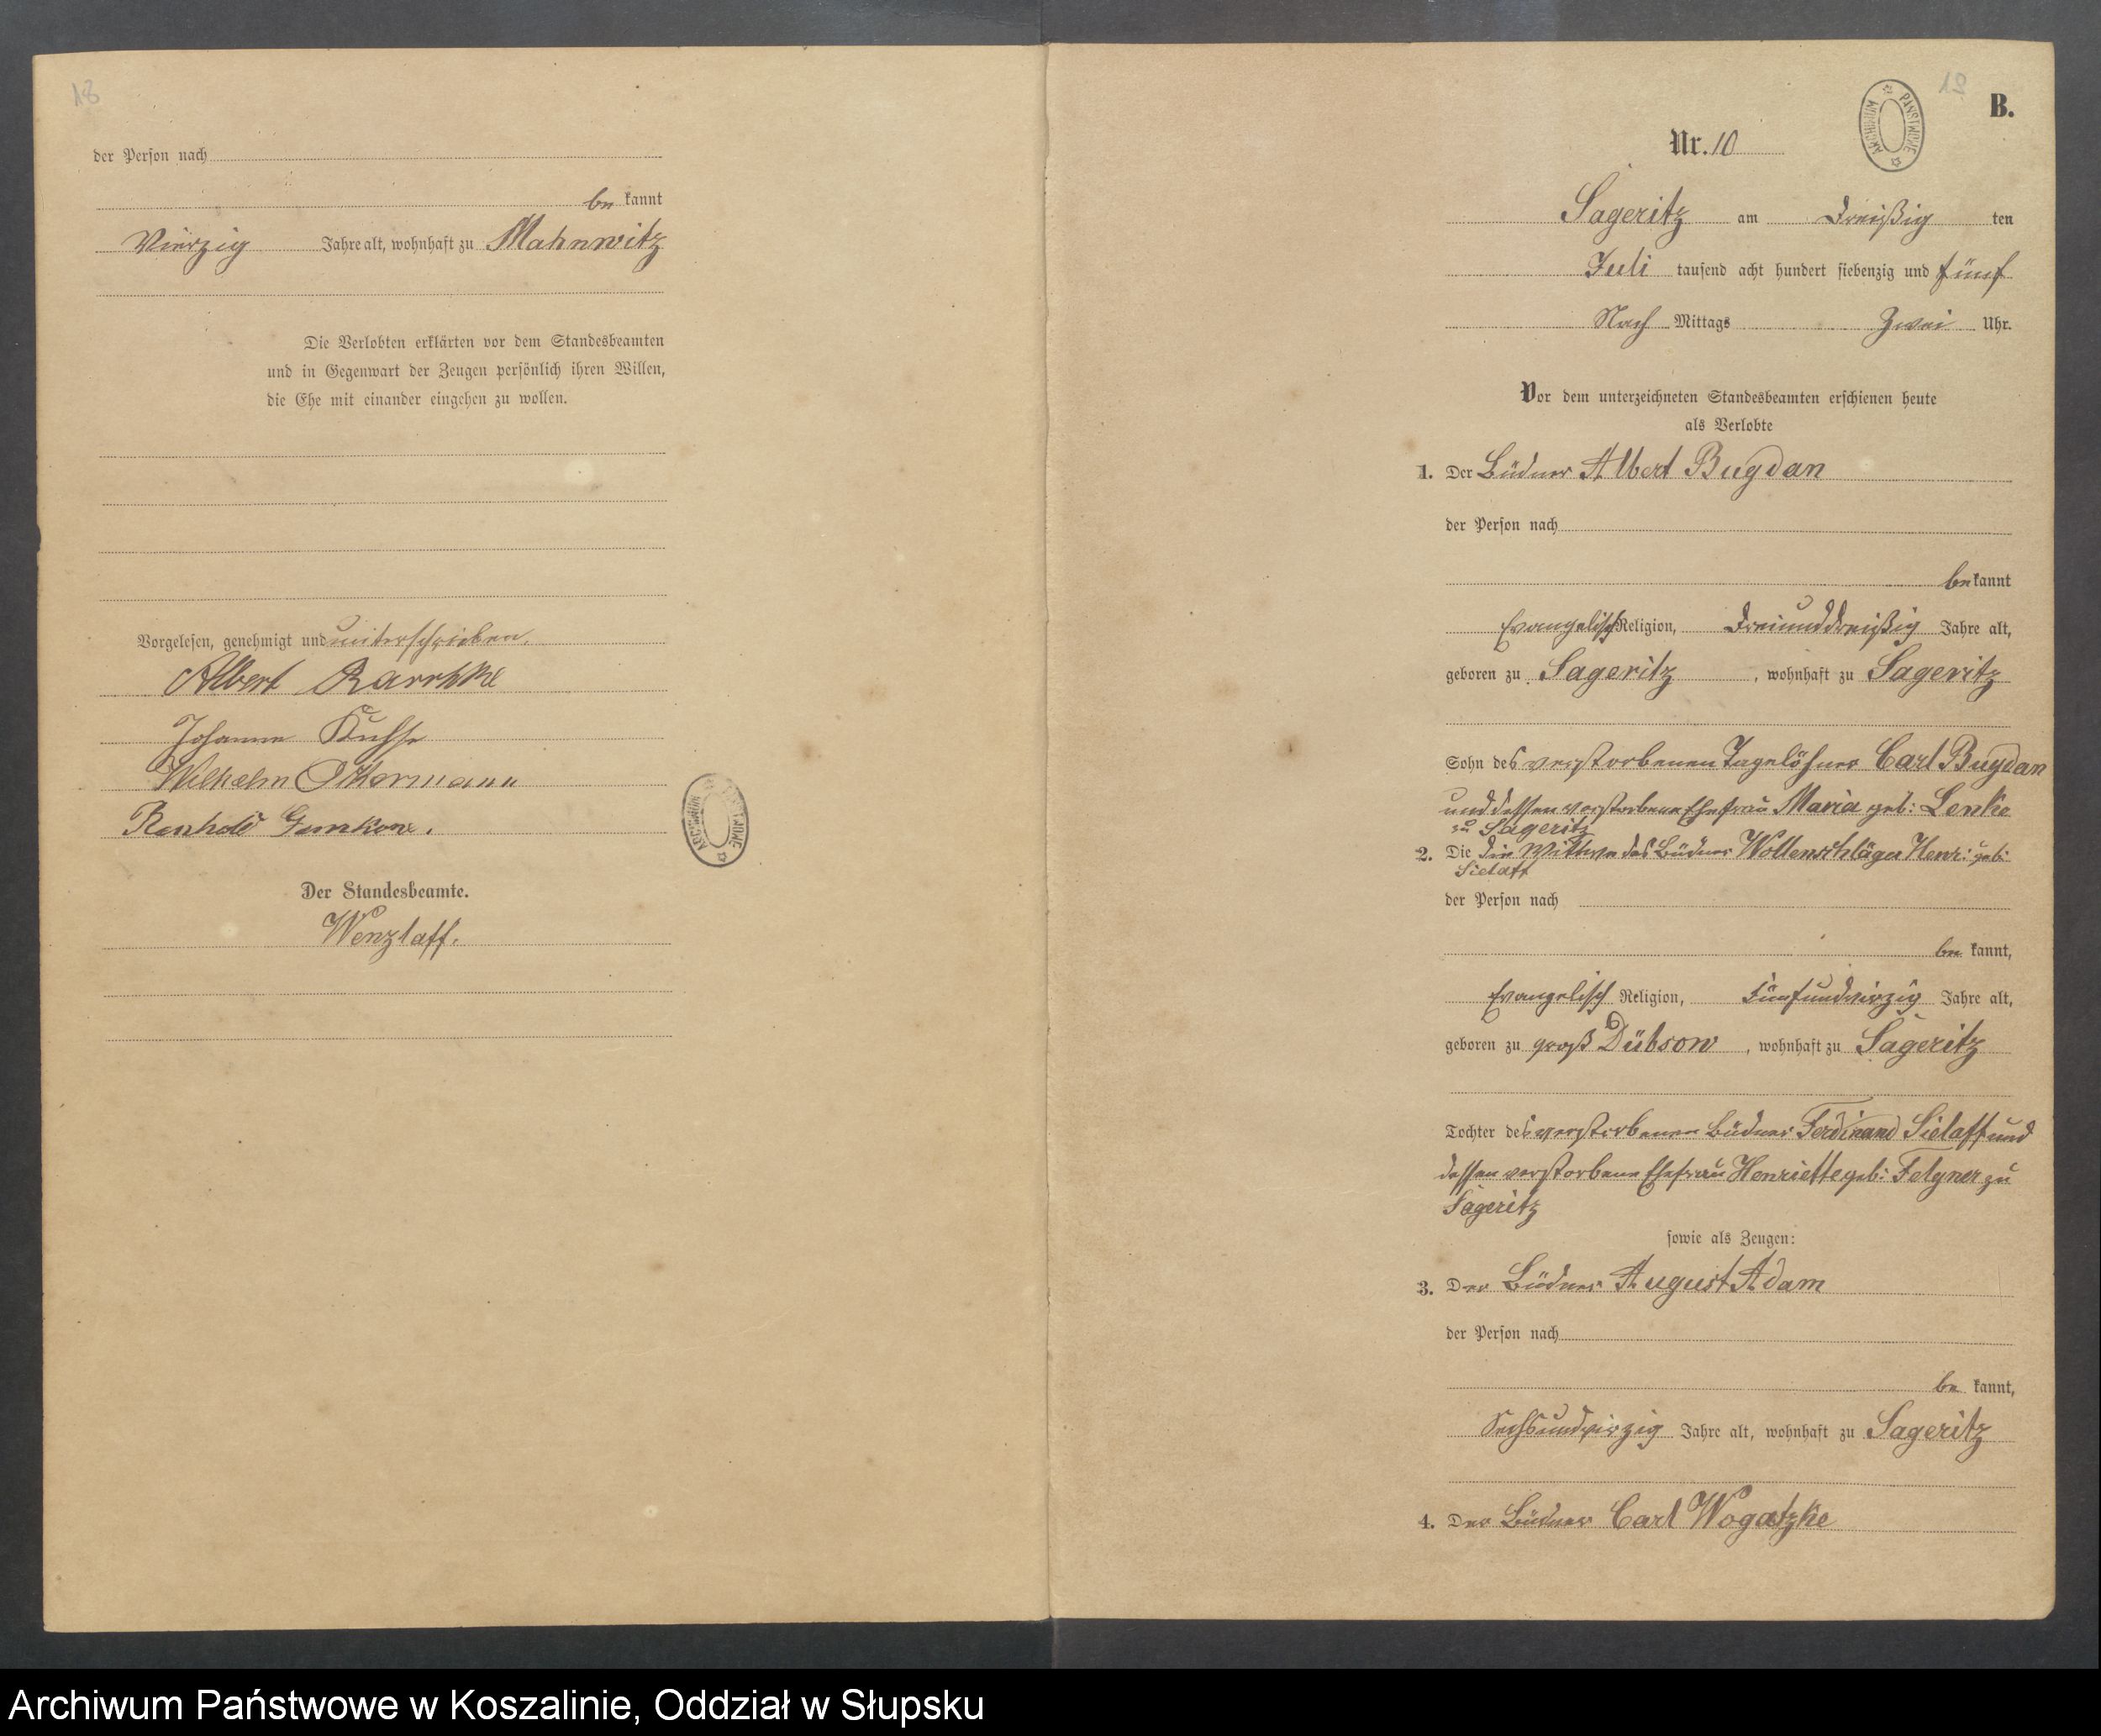 18
der Person nach
be kannt
Vierzig Jahre alt, wohnhaft zu Mahnwitz
Die Verlobten erklärten vor dem Standesbeamten
und in Gegenwart der Zeugen persönlich ihren Willen,
die Ehe mit einander eingehen zu wollen.
Vorgelesen, genehmigt und unterschrieben.
Albert
Johanne
Wilhelm
Der Standesbeamte.
Wenzlaff.
ARCHIWUM PAŃSTWOWE
19
B.
ARCHIWUM PAŃSTWOWE
Nr. 10
Sageritz am Dreißig ten
Juli tausend acht hundert siebenzig und fünf
Nach Mittags Zwei Uhr.
Vor dem unterzeichneten Standesbeamten erschienen heute
als Verlobte
1. Der Büdner Albert Bugdan
der Person nach
bekannt
Evangelisch Religion, Dreiunddreißig Jahre alt,
geboren zu Sageritz, wohnhaft zu Sageritz
Sohn des verstorbenen Tagelöhner Carl Bugdan
und dessen verstorbene Ehefrau Maria geb: Lenke
zu Sageritz
2. Die die Wittwe des Büdner Wollenschläger Henr: geb:
Sielaff
der Person nach
be kannt,
Evangelisch Religion, Fünfundvierzig Jahre alt,
geboren zu groß Dübsow, wohnhaft zu Sageritz
Tochter des verstorbenen Büdner Ferdinand Sielaff und
dessen verstorbene Ehefrau Henriette geb: Felgner zu
Sageritz
sowie als Zeugen:
3. Der Büdner August Adam
der Person nach
be kannt,
Sechsundvierzig Jahre alt, wohnhaft zu Sageritz
4. Der Büdner Carl Wogatzke
Archiwum Państwowe w Koszalinie, Oddział w Słupsku